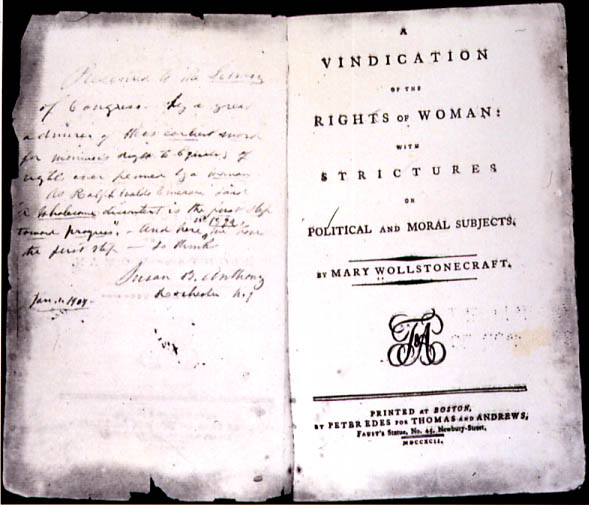 Presented to the Library
of Congress. By a great
admirer of this earliest word
for woman's right to Equality of
rights ever penned by a woman
As Ralph Waldo Emerson said
"A wholesome discontent is the first step
toward progress". - And here, in 1792, we have
the first step - So think
Susan B. Anthony
Rochester N.Y
Jan. 1. 1904.
A
VINDICATION
OF THE
RIGHTS OF WOMAN:
WITH
STRICTURES
ON
POLITICAL AND MORAL SUBJECTS.
BY MARY WOLLSTONECRAFT.
T&A
PRINTED AT BOSTON,
BY PETER EDES FOR THOMAS AND ANDREWS,
FAUST'S Statue, No. 45, Newbury-Street,
MDCCXCII.